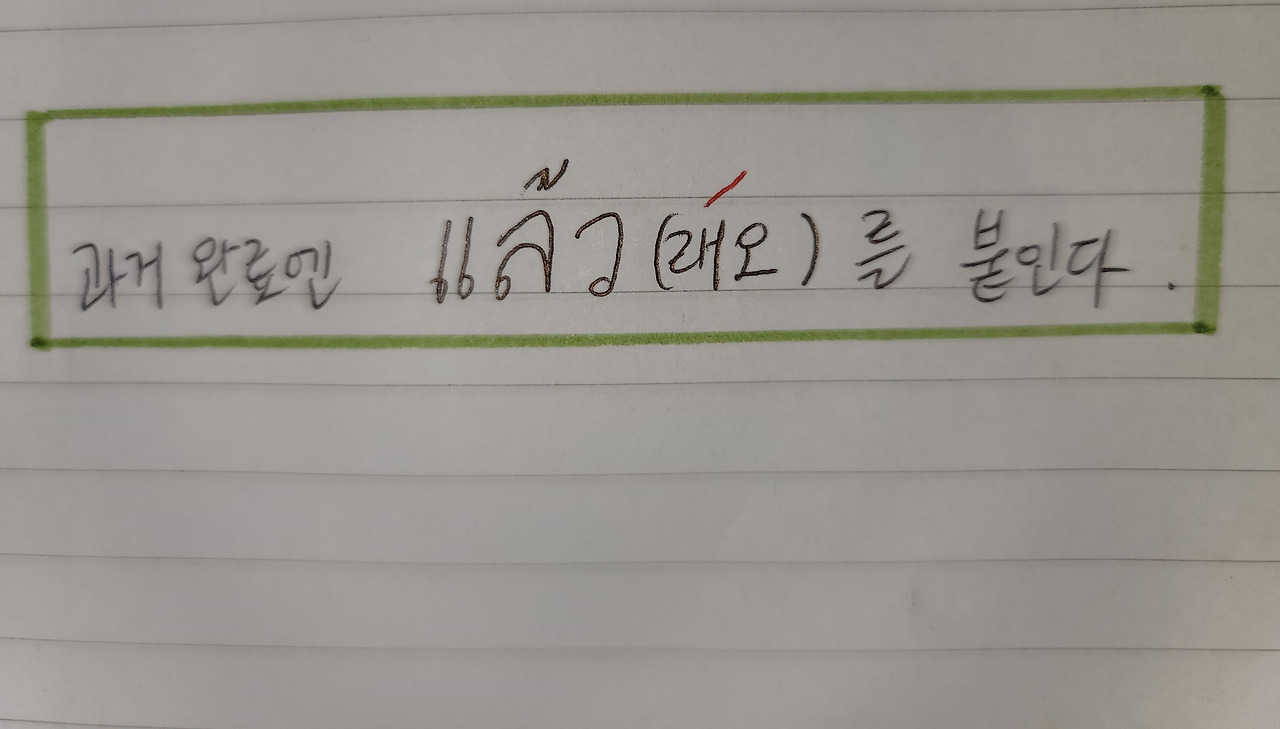 과거 완료엔 แล้ว (래오)를 붙인다.